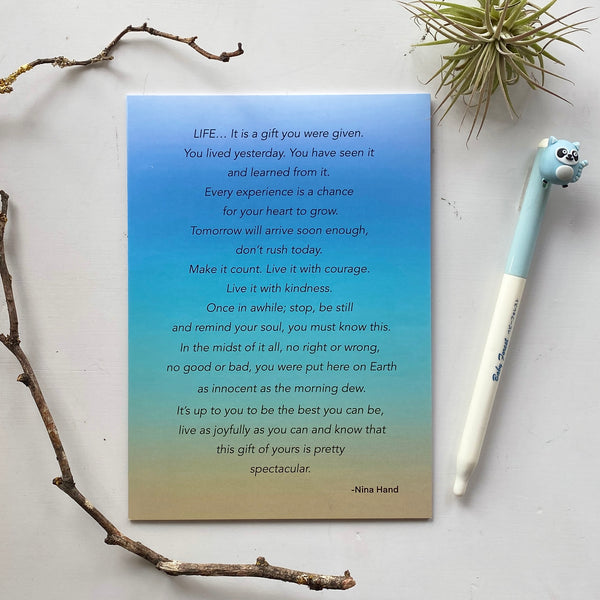 LIFE… It is a gift you were given.
You lived yesterday. You have seen it
and learned from it.
Every experience is a chance
for your heart to grow.
Tomorrow will arrive soon enough,
don't rush today.
Make it count. Live it with courage.
Live it with kindness.
Once in awhile; stop, be still
and remind your soul, you must know this.
In the midst of it all, no right or wrong,
no good or bad, you were put here on Earth
as innocent as the morning dew.
It's up to you to be the best you can be,
live as joyfully as you can and know that
this gift of yours is pretty
spectacular.
-Nina Hand
Baby Forest